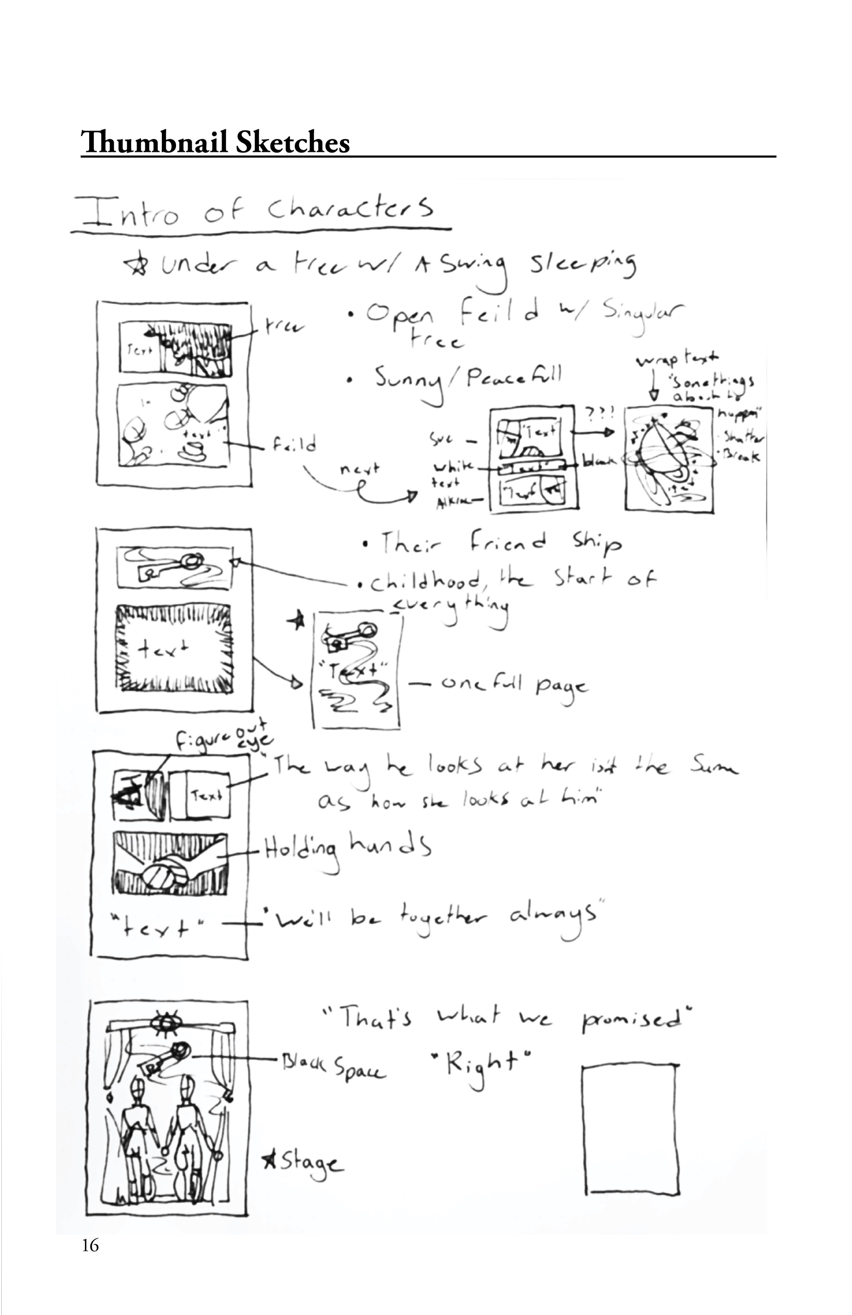 Thumbnail Sketches
Intro of characters
☆ Under a tree w/ A Swing Sleeping
• Open feild w/ Singular
tree
• Sunny/Peacefull
tree
Text
"text"
feild
next
wrap text
"Somethings
about to
happen"
• Shatter
• Break
???!
Sue
"Text"
white
text
"Text"
black
"Text"
"text"
• Their Friend Ship
• childhood, the Start of
everything
text
★
"Text"
one full page
figure out
eye
Text
"The way he looks at her isn't the Same
as how she looks at him"
Holding hands
"text"
"We'll be together always"
"That's what we promised"
"Right"
Black Space
★Stage
16